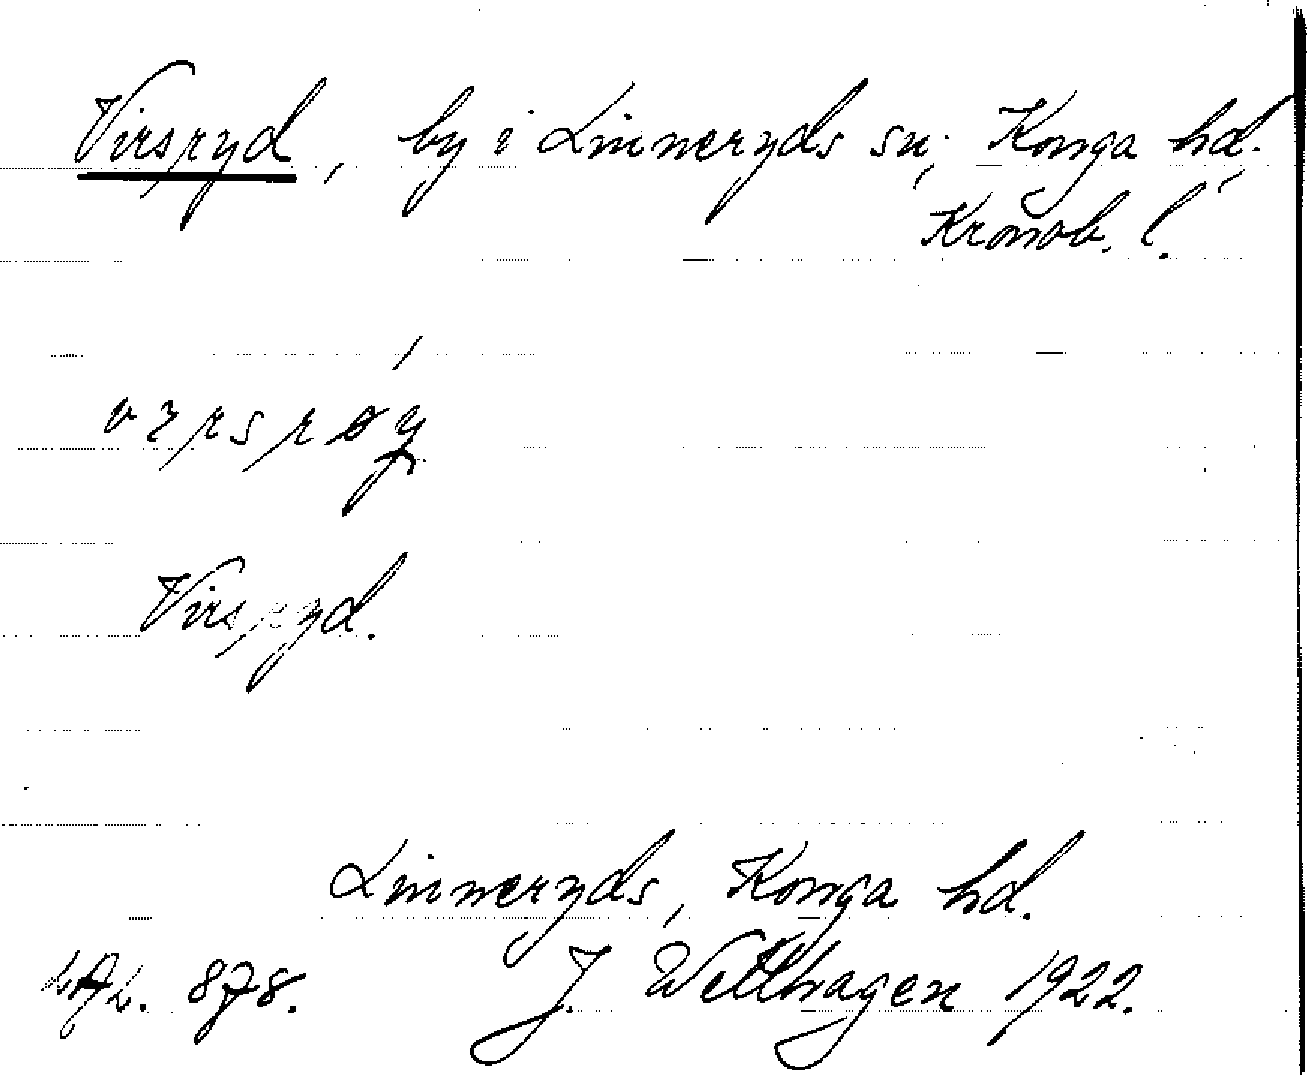 Virsryd, by i Linneryds sn, Konga hd.
Kronob. l.
Virsryd.
Linneryds, Konga hd.
878. J. Wetthagen 1922.